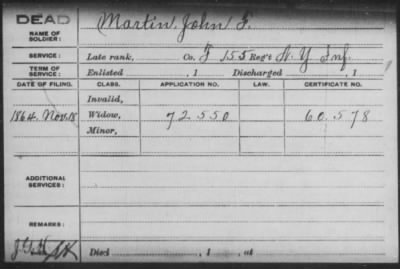 DEAD
NAME OF SOLDIER: Martin, John F.
SERVICE: Late rank, Co. F 155 Reg't N. Y. Inf.
TERM OF SERVICE: Enlisted , 1 Discharged , 1
DATE OF FILING. CLASS. APPLICATION NO. LAW. CERTIFICATE NO.
Invalid,
1864. Nov. 18 Widow, 72.550 60.578
Minor,
ADDITIONAL SERVICES:
REMARKS:
Died , 1 , at